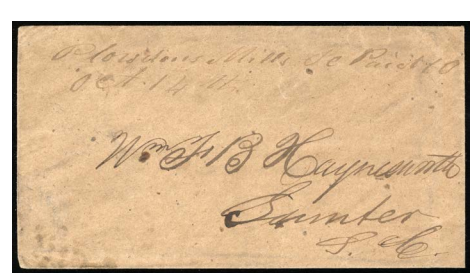 Plowdens Mills SC Paid 10
Oct. 14th
Wm F B Haynesworth
Sumter
S. C.